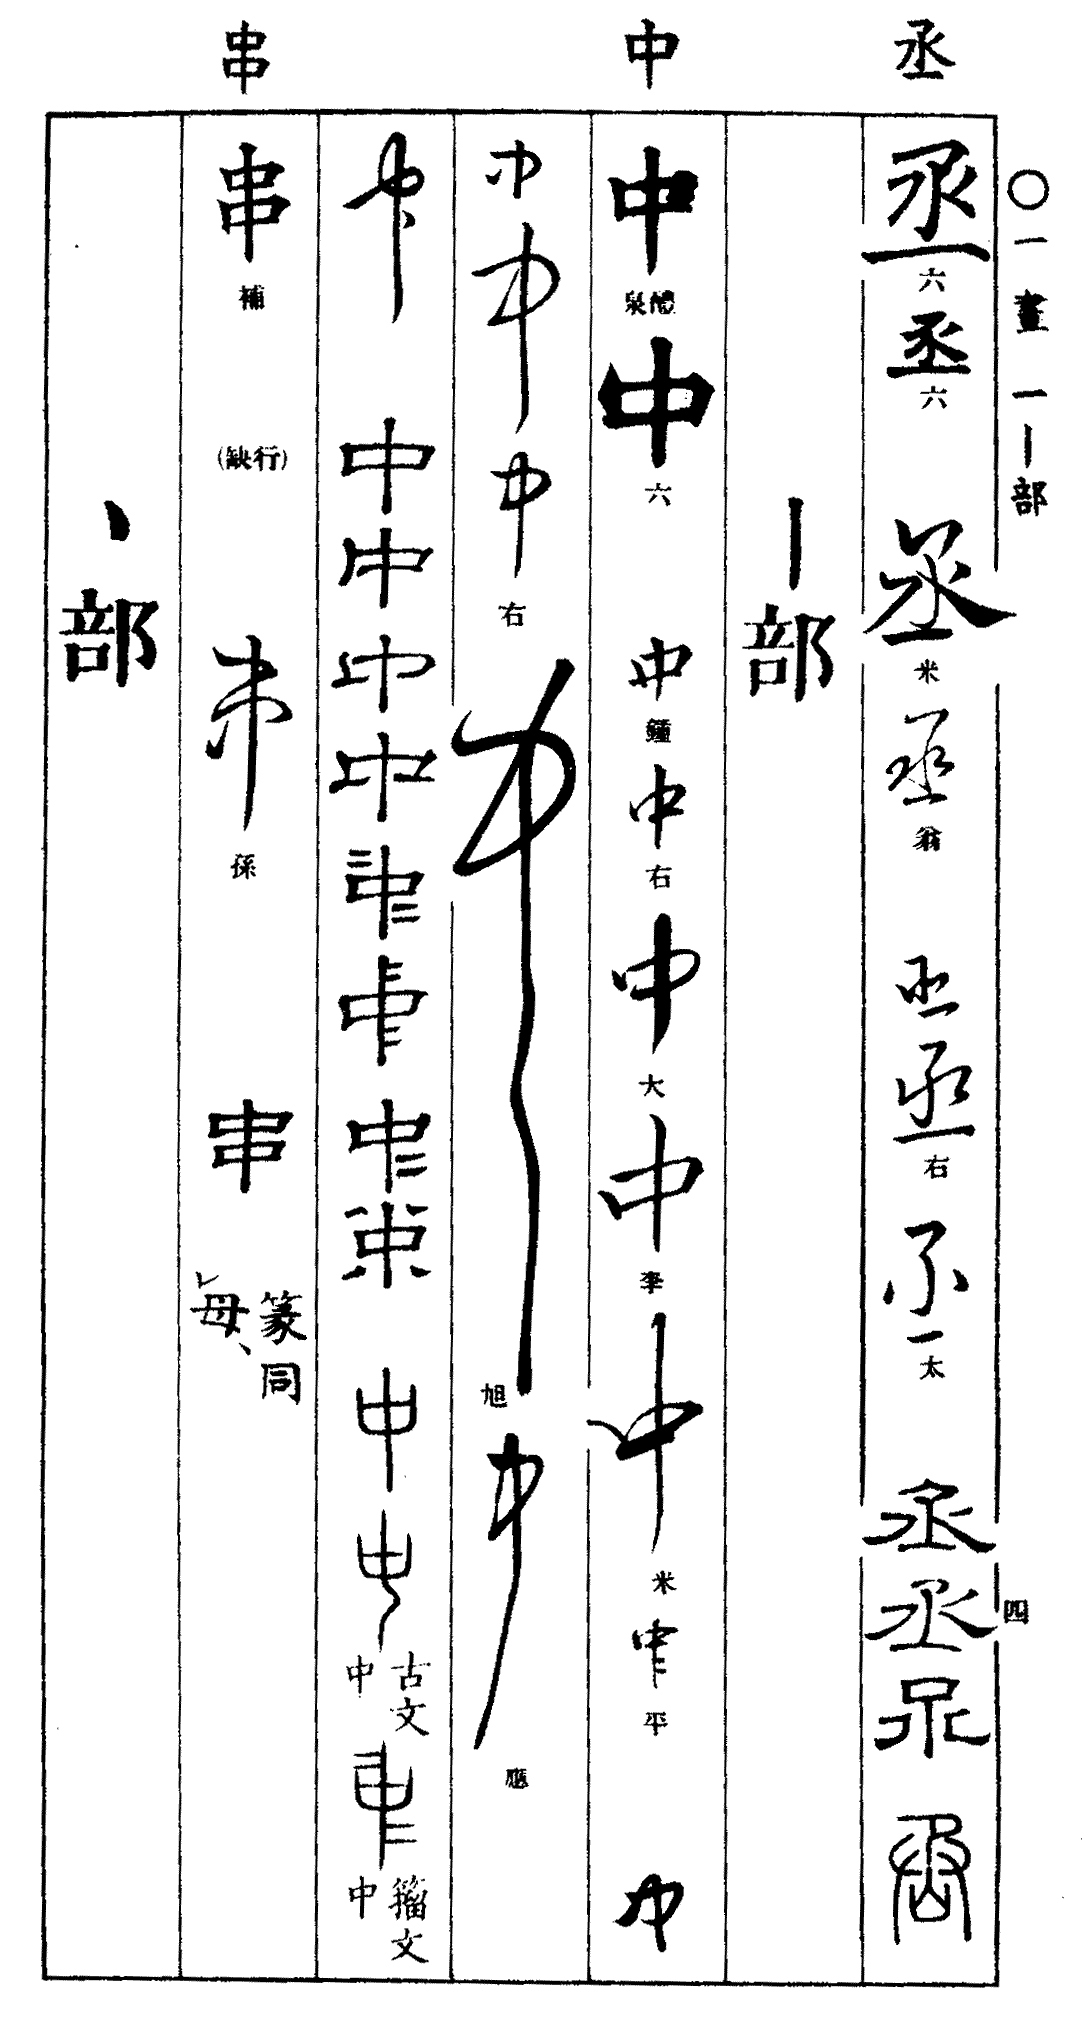 丞　中　串
〇一畫　一丨部
四
丞六丞六　丞米丞翁　丞丞右丞太　丞丞丞丞
丨部
中醴泉中六　中鍾中右中大中李中米中平　中
中中中右中旭中應
中　中中中中中中中中　中中古文中中籀文中
串補　(行缺)　串孫　串　篆同毌、
丶部